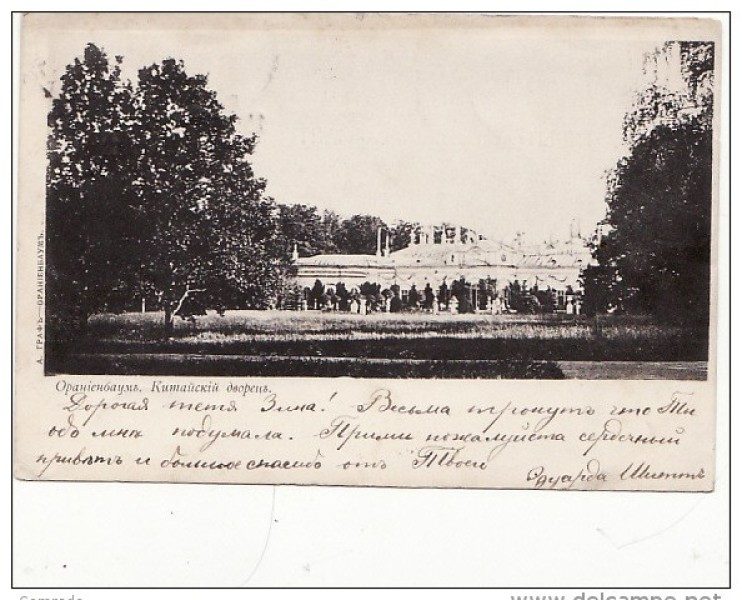 А. ГРАФЪ—ОРАНІЕНБАУМЪ.
Ораніенбаумъ. Китайскій дворецъ.
Дорогая тетя Зина! Весьма тронутъ что Ты
обо мнѣ подумала. Прими пожалуйста сердечный
привѣтъ и большое спасибо отъ Твоего
Эдуарда
www.delcampe.net